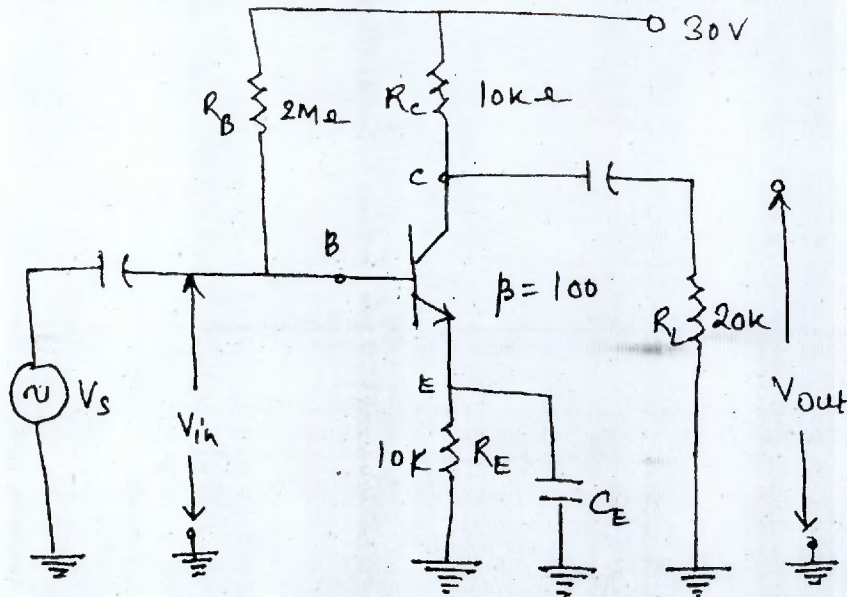 30V
R_B 2MΩ
R_C 10KΩ
C
B
β = 100
R_L 20K
V_S
V_in
E
10K R_E
C_E
V_out